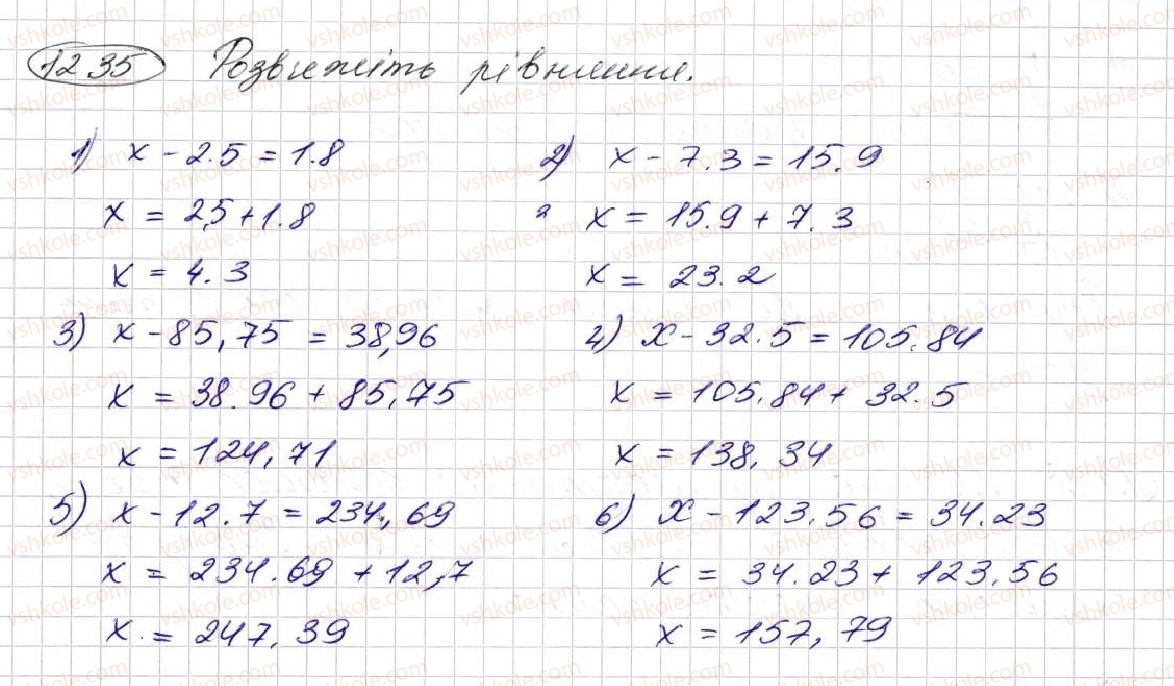 1235 Розвяжіть рівняння.
1) x - 2.5 = 1.8
x = 2,5 + 1.8
x = 4.3
2) x - 7.3 = 15.9
x = 15.9 + 7.3
x = 23.2
3) x - 85,75 = 38,96
x = 38.96 + 85,75
x = 124,71
4) x - 32.5 = 105.84
x = 105.84 + 32.5
x = 138,34
5) x - 12.7 = 234,69
x = 234.69 + 12,7
x = 247,39
6) x - 123.56 = 34.23
x = 34.23 + 123.56
x = 157,79
vshkole.com